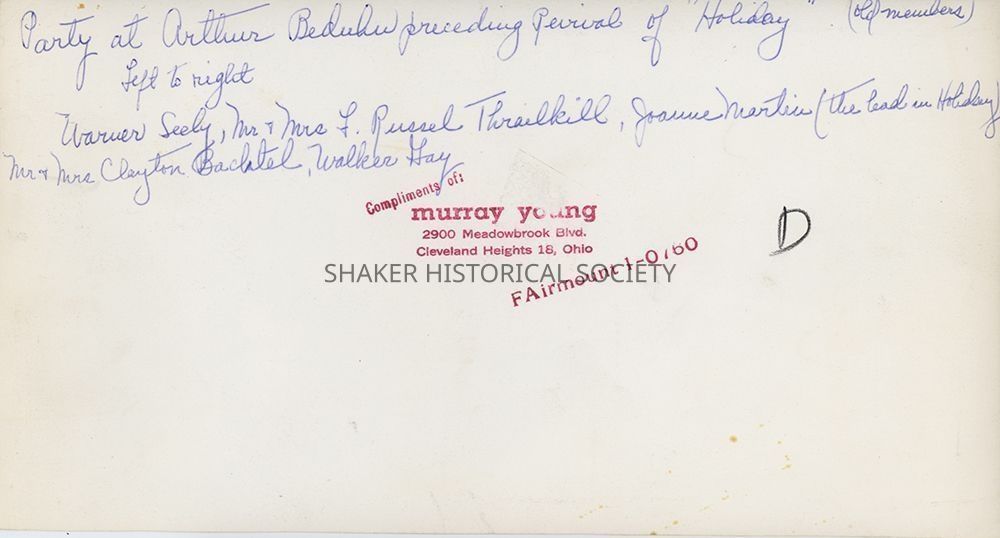 Party at Arthur Beduhn preceding Revival of "Holiday". (old members)
Left to right
Warner Seely, Mr & Mrs F. Russel Thrailkill, Joanne Martin (the lead in Holiday)
Mr & Mrs Clayton Bachtel, Walker Gay
Compliments of:
murray young
2900 Meadowbrook Blvd.
Cleveland Heights 18, Ohio
FAirmount 1-0760
D
SHAKER HISTORICAL SOCIETY